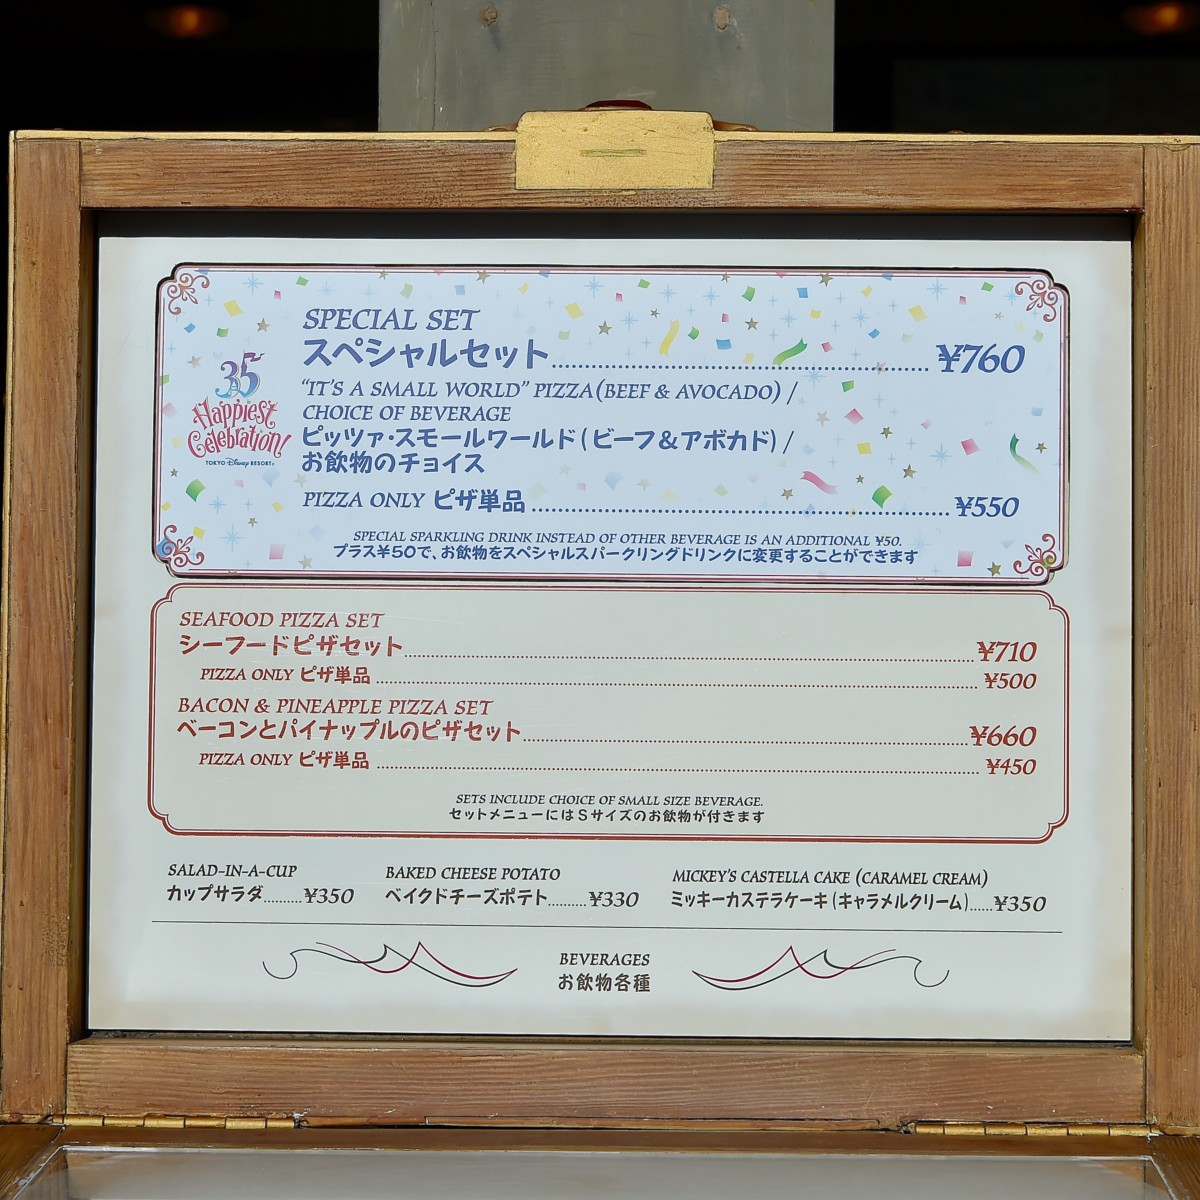 35
Happiest
Celebration!
TOKYO Disney RESORT®
SPECIAL SET
スペシャルセット..........¥760
"IT'S A SMALL WORLD" PIZZA (BEEF & AVOCADO) /
CHOICE OF BEVERAGE
ピッツァ・スモールワールド (ビーフ&アボカド) /
お飲物のチョイス
PIZZA ONLY ピザ単品..........¥550
SPECIAL SPARKLING DRINK INSTEAD OF OTHER BEVERAGE IS AN ADDITIONAL ¥50.
プラス¥50で、お飲物をスペシャルスパークリングドリンクに変更することができます
SEAFOOD PIZZA SET
シーフードピザセット..........¥710
PIZZA ONLY ピザ単品..........¥500
BACON & PINEAPPLE PIZZA SET
ベーコンとパイナップルのピザセット..........¥660
PIZZA ONLY ピザ単品..........¥450
SETS INCLUDE CHOICE OF SMALL SIZE BEVERAGE.
セットメニューにはSサイズのお飲物が付きます
SALAD-IN-A-CUP
カップサラダ..........¥350
BAKED CHEESE POTATO
ベイクドチーズポテト..........¥330
MICKEY'S CASTELLA CAKE (CARAMEL CREAM)
ミッキーカステラケーキ (キャラメルクリーム)......¥350
BEVERAGES
お飲物各種